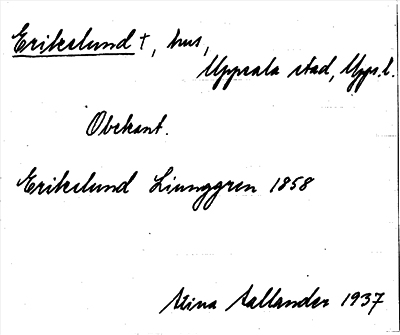 Erikslund †, hus,
Uppsala stad, Upps. l.
Obekant.
Erikslund Ljunggren 1858
Stina Sallander 1937